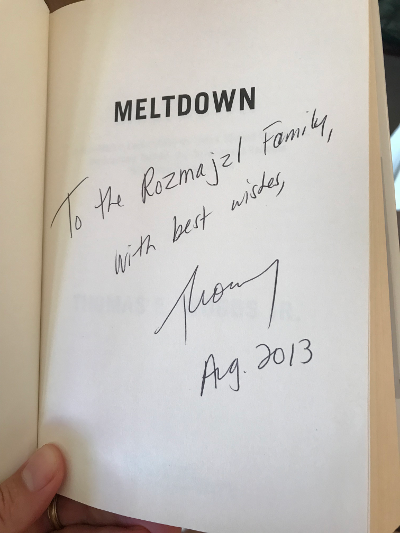 MELTDOWN
To the Rozmajzl Family,
with best wishes,
Thomas
Aug. 2013